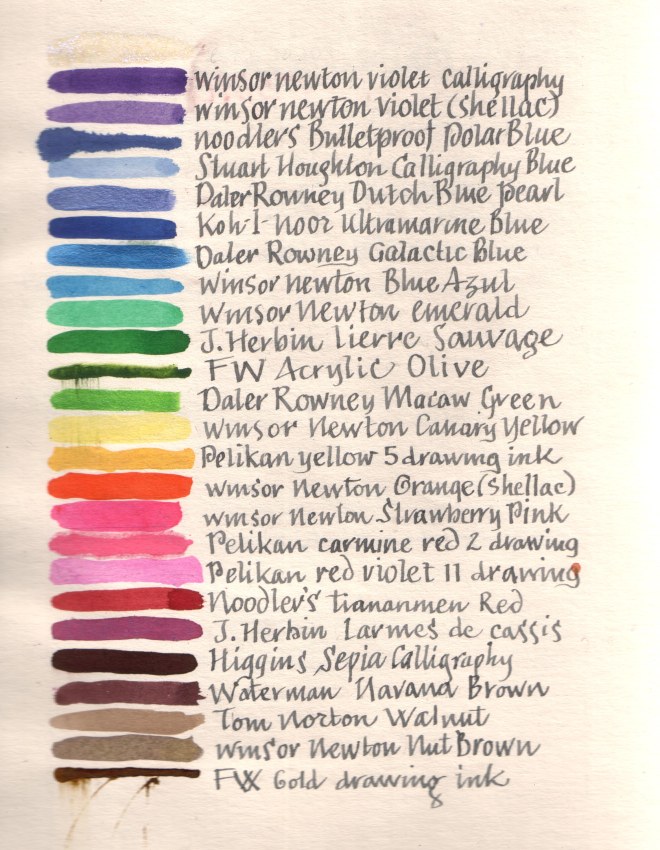 winsor newton violet calligraphy
winsor newton violet (shellac)
noodlers Bulletproof Polar Blue
Stuart Houghton Calligraphy Blue
Daler Rowney Dutch Blue pearl
Koh-I-Noor Ultramarine Blue
Daler Rowney Galactic Blue
winsor newton Blue Azul
Winsor Newton emerald
J. Herbin Lierre Sauvage
FW Acrylic Olive
Daler Rowney Macaw Green
winsor Newton Canary Yellow
Pelikan yellow 5 drawing ink
winsor Newton Orange (Shellac)
winsor newton Strawberry Pink
Pelikan carmine red 2 drawing
Pelikan red violet 11 drawing
Noodler's tiananmen Red
J. Herbin Larmes de cassis
Higgins Sepia Calligraphy
Waterman Havana Brown
Tom Norton Walnut
winsor Newton Nut Brown
FW Gold drawing ink